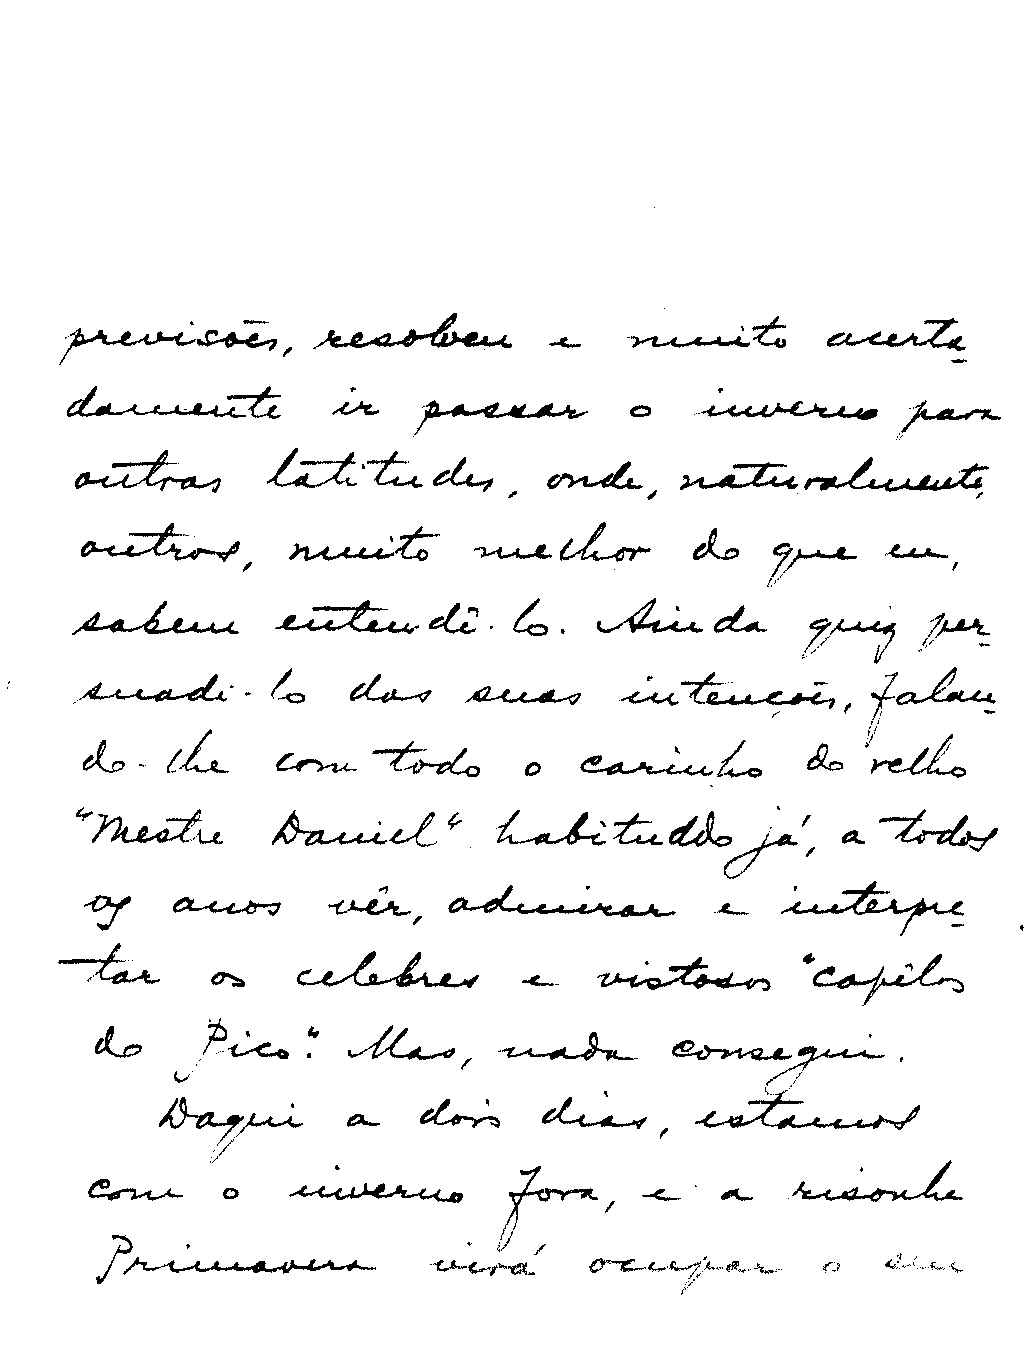 previsões, resolveu e muito acerta-
damente ir passar o inverno para
outras latitudes, onde, naturalmente,
outros, muito melhor do que eu,
sabem entendê-lo. Ainda quiz per-
suadi-lo das suas intenções, falan-
do-lhe com todo o carinho do velho
"Mestre Daniel" habituado já, a todos
os anos vêr, admirar e interpre-
tar os celebres e vistosos "capêlos
do Pico". Mas, nada consegui.
Daqui a dois dias, estamos
com o inverno fora, e a risonha
Primavera virá ocupar o seu